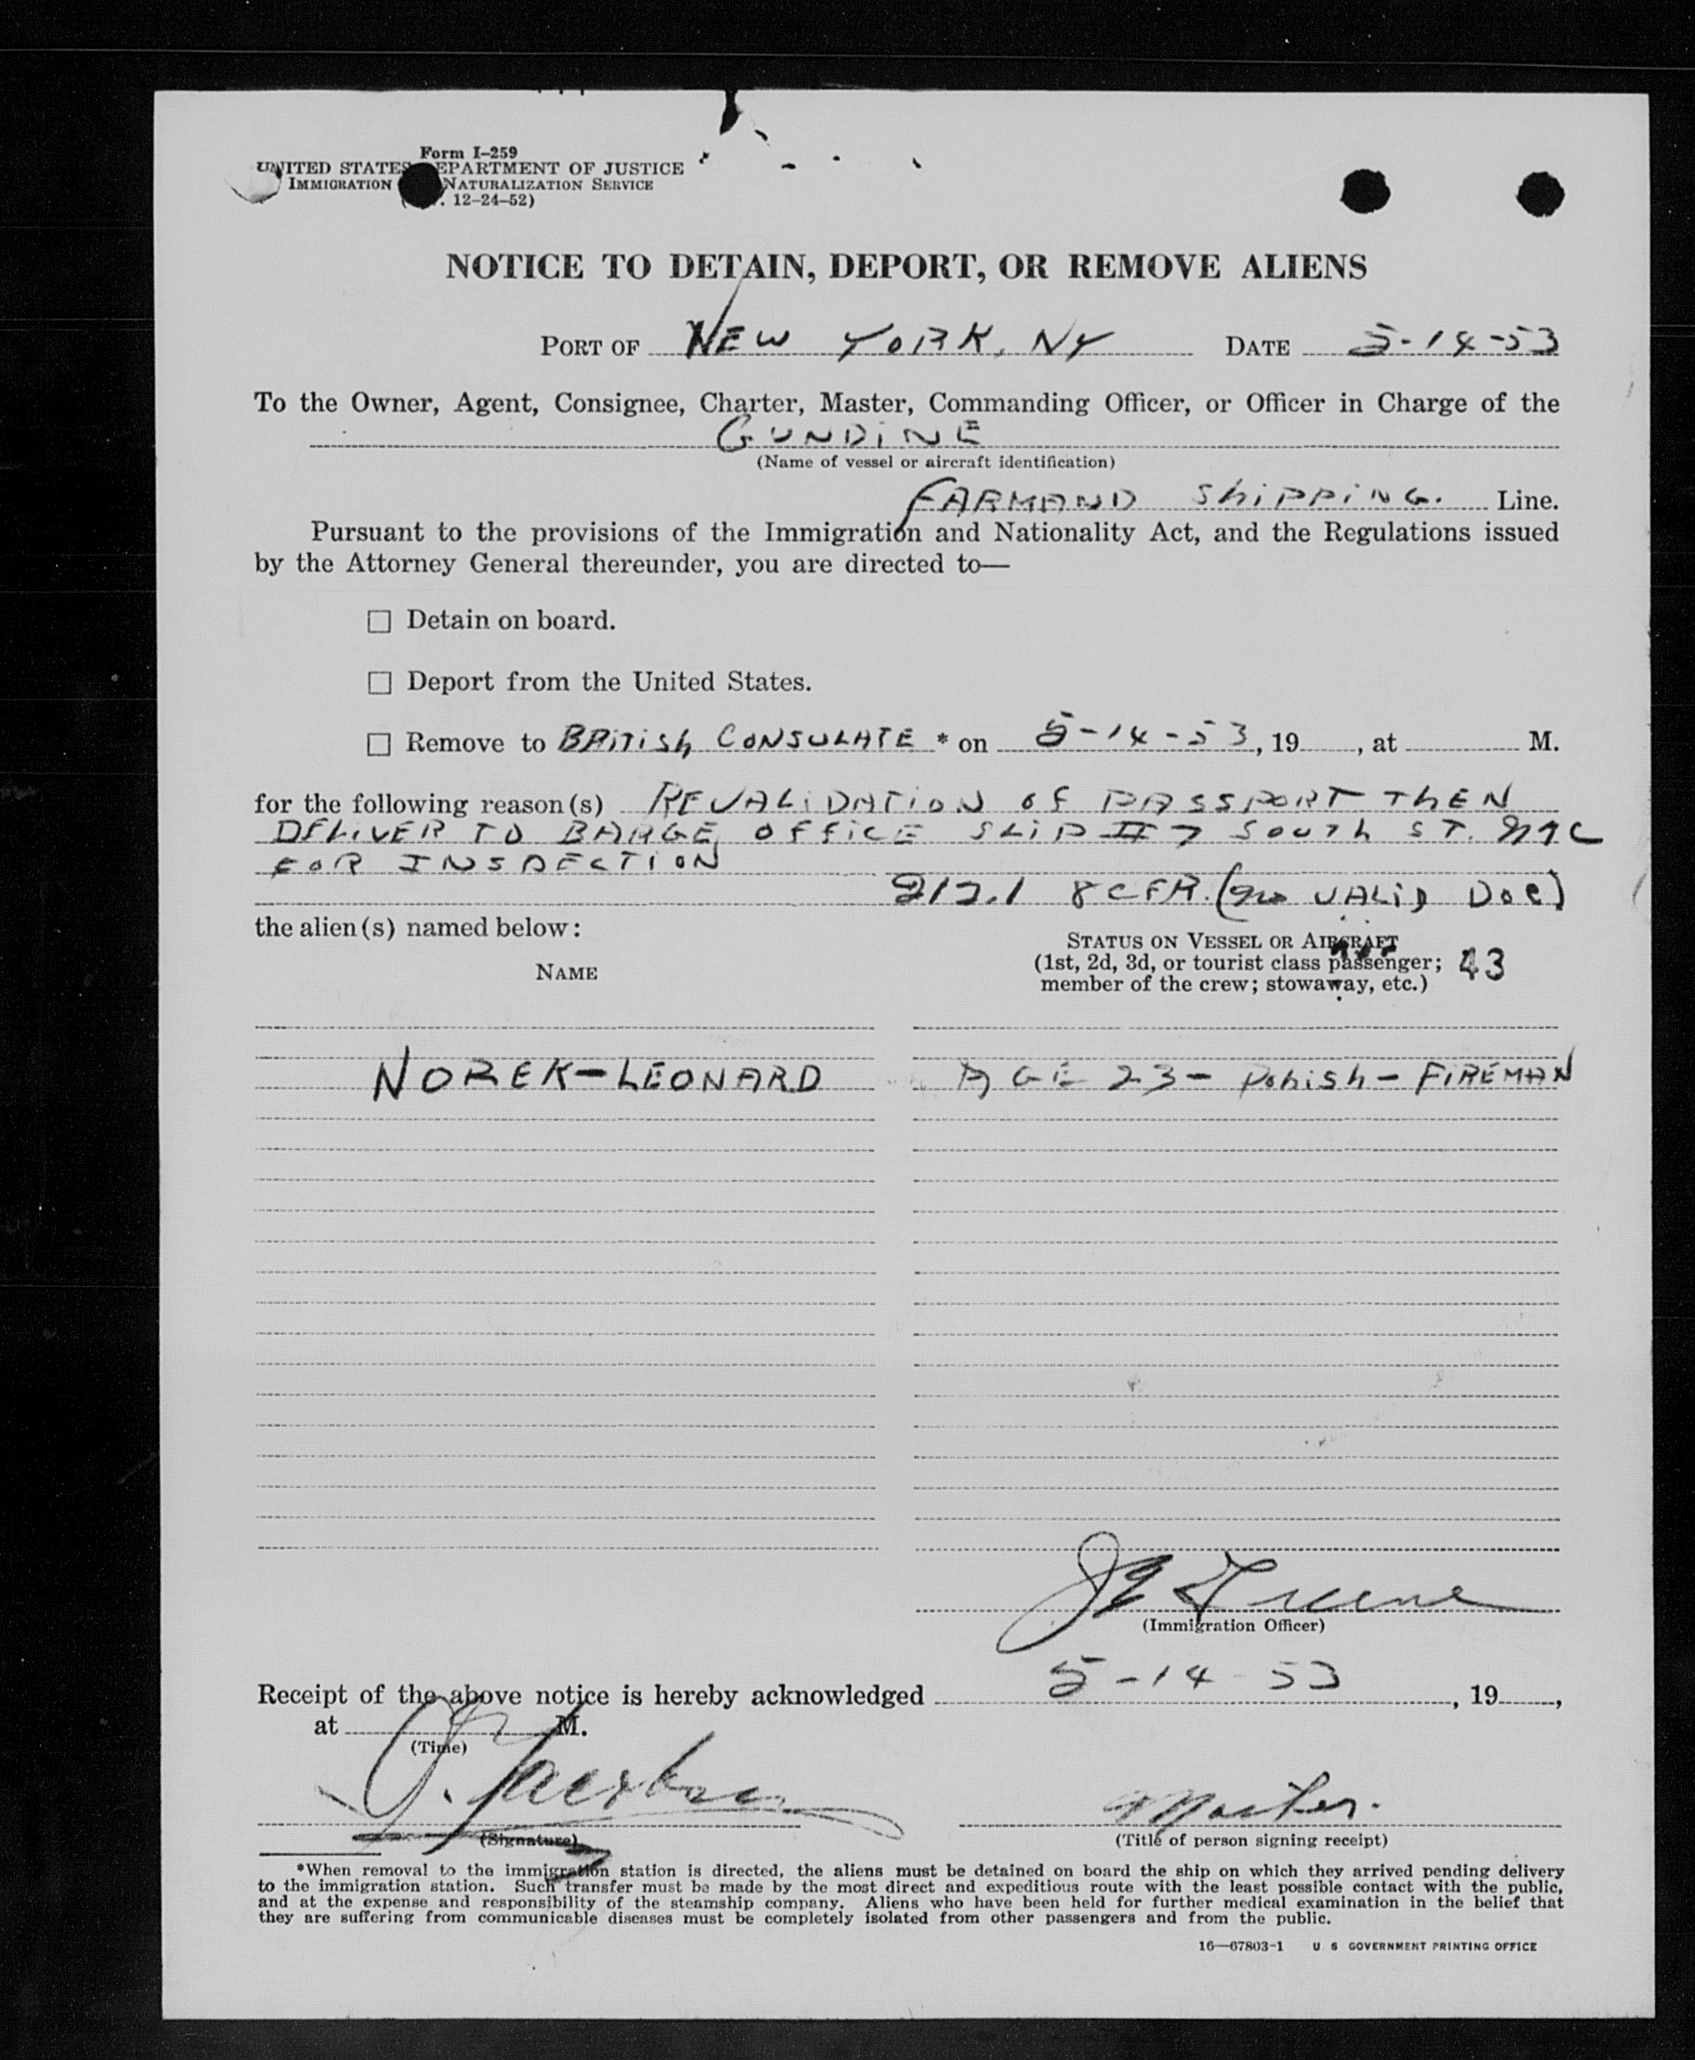 Form I-259
UNITED STATES DEPARTMENT OF JUSTICE
IMMIGRATION NATURALIZATION SERVICE
12-24-52)
NOTICE TO DETAIN, DEPORT, OR REMOVE ALIENS
PORT OF NEW YORK, NY DATE 5-14-53
To the Owner, Agent, Consignee, Charter, Master, Commanding Officer, or Officer in Charge of the
GUNDINE
(Name of vessel or aircraft identification)
FARMAND ShiPPiNG. Line.
Pursuant to the provisions of the Immigration and Nationality Act, and the Regulations issued
by the Attorney General thereunder, you are directed to—
☐ Detain on board.
☐ Deport from the United States.
☐ Remove to BRiTiSh CONSULATE * on 5-14-53, 19____, at ____ M.
for the following reason(s) REVALiDATiON Of PASSPORT ThEN
DELiVER TO BARGE OffiCE SLiP #7 SOUTh ST. NYC
FOR INSPECTiON
212.1 8 CFR. (no VALiD DOC)
the alien(s) named below:
NAME
STATUS ON VESSEL OR AIRCRAFT
(1st, 2d, 3d, or tourist class passenger;
member of the crew; stowaway, etc.)
43
NOREK-LEONARD AGE 23- POLiSh- FiREMAN
(Immigration Officer)
Receipt of the above notice is hereby acknowledged 5-14-53, 19____,
at ____ M.
(Time)
Master.
(Signature) (Title of person signing receipt)
*When removal to the immigration station is directed, the aliens must be detained on board the ship on which they arrived pending delivery
to the immigration station. Such transfer must be made by the most direct and expeditious route with the least possible contact with the public,
and at the expense and responsibility of the steamship company. Aliens who have been held for further medical examination in the belief that
they are suffering from communicable diseases must be completely isolated from other passengers and from the public.
16—67803-1 U S GOVERNMENT PRINTING OFFICE